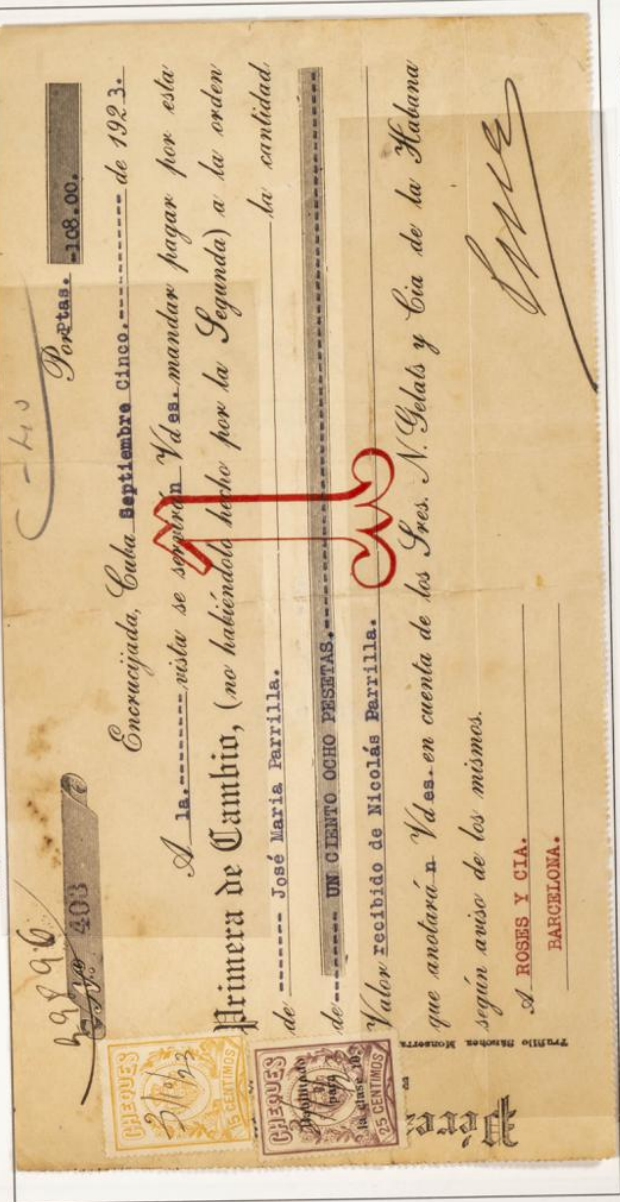 39896
No 403
Por Ptas. -108.00.
Encrucijada, Cuba Septiembre Cinco.---------- de 1923.
A la.--------- vista se servirán Vdes. mandar pagar por esta
Primera de Cambio, (no habiéndolo hecho por la Segunda) a la orden
de ------- José Maria Parrilla. la cantidad
de-------- UN CIENTO OCHO PESETAS.
Valor recibido de Nicolás Parrilla.
que anotarán Vdes. en cuenta de los Sres. N. Gelats y Cia de la Habana
según aviso de los mismos.
A ROSES Y CIA.
BARCELONA.
CHEQUES
15 CENTIMOS
CHEQUES
Habilitado
para
la clase 10ª
25 CENTIMOS
Trujillo Sánchez Monserra
Pérez